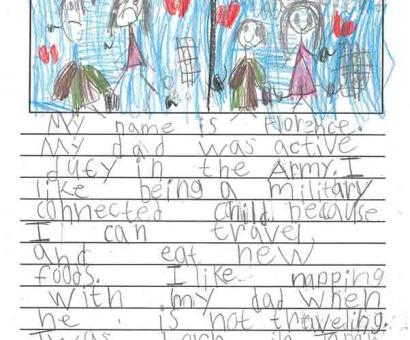 My name is Florence.
My dad was active
duty in the Army. I
like being a military
connected child because
I can travel,
and eat new
foods. I like napping
with my dad when
he is not traveling.
I was